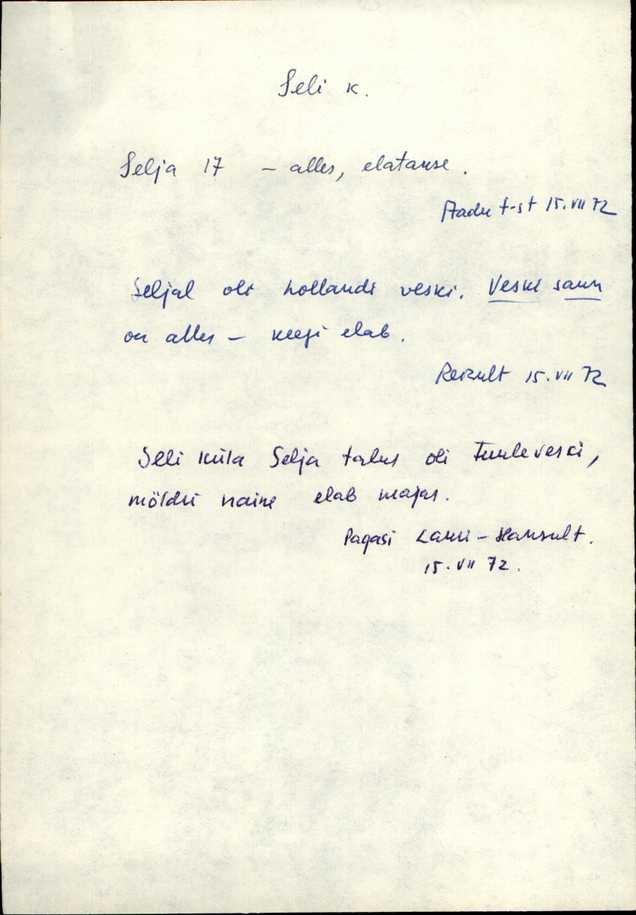 Seli k.
Selja 17 – alles, elatakse.
Aadu t-st 15.VII 72
Seljal oli hollandi veski. Veski saun
on alles – keegi elab.
Reinult 15.VII 72
Seli küla Selja talus oli tuuleveski,
möldri naine elab majas.
Pagasi Lauri-Hansult.
15.VII 72.